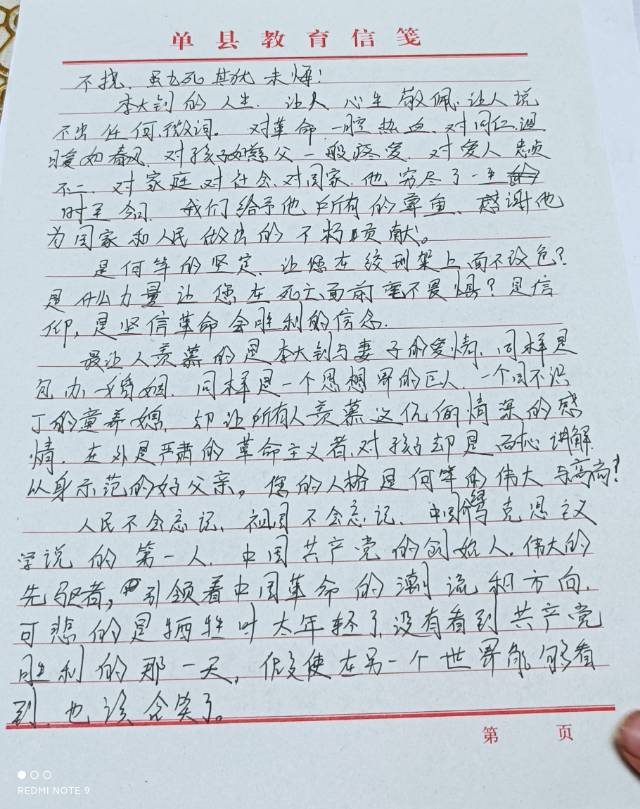 单县教育信笺
不挠,虽九死其犹未悔!
李大钊的人生,让人心生敬佩,让人说
不出任何微词。对革命一腔热血,对同仁温
暖如春风,对孩子如慈父一般疼爱,对爱人忠贞
不二,对家庭,对社会,对国家,他穷尽了一生
时至今日,我们给予他所有的尊重,感谢他
为国家和人民做出的不朽贡献。
是何等的坚定,让您在绞刑架上面不改色?
是什么力量让您在死亡面前毫不畏惧?是信
仰,是坚信革命会胜利的信念.
最让人羡慕的是李大钊与妻子的爱情,同样是
包办婚姻,同样是一个思想界的巨人,一个目不识
丁的童养媳,却让所有人羡慕这伉俪情深的感
情,在外是严肃的革命主义者,对孩子却是耐心讲解
以身示范的好父亲。您的人格是何等的伟大与高尚?
人民不会忘记,祖国不会忘记,中国传马克思主义
学说的第一人,中国共产党的创始人,伟大的
先驱者,引领着中国革命的潮流和方向,
可悲的是牺牲时太年轻了,没有看到共产党
胜利的那一天,假使在另一个世界能够看
到,也该含笑了。
第 页
REDMI NOTE 9